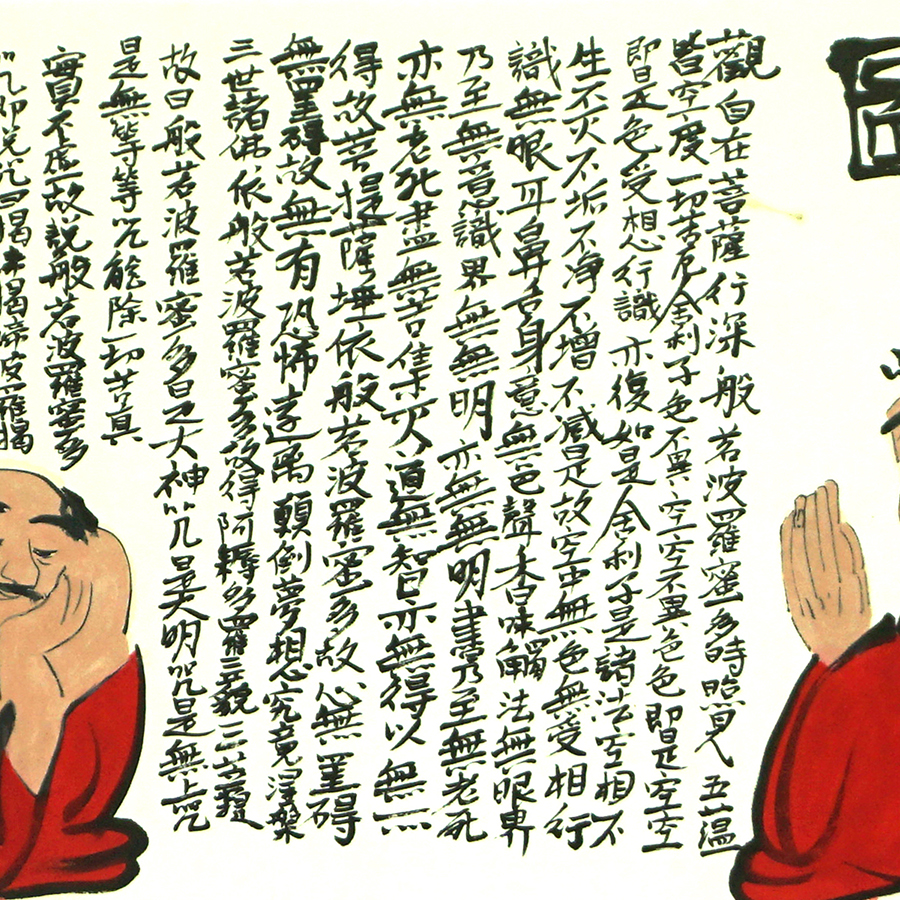 觀自在菩薩行深般若波羅蜜多時照見五蘊
皆空度一切苦厄舍利子色不異空空不異色色即是空空
即是色受想行識亦復如是舍利子是諸法空相不
生不灭不垢不净不增不减是故空中無色無受相行
識無眼耳鼻舌身意無色聲香味觸法無眼界
乃至無意識界無無明亦無無明盡乃至無老死
亦無老死盡無苦集灭道無智亦無得以無
得故菩提薩埵依般若波羅蜜多故心無罣碍
無罣碍故無有恐怖遠离顛倒夢想究竟涅槃
三世諸佛依般若波羅蜜多故得阿耨多羅三藐三菩提
故曰般若波羅蜜多是大神咒是大明咒是無上咒
是無等等咒能除一切苦真
實不虛故説般若波羅蜜多
咒即説咒曰揭諦揭諦波羅揭